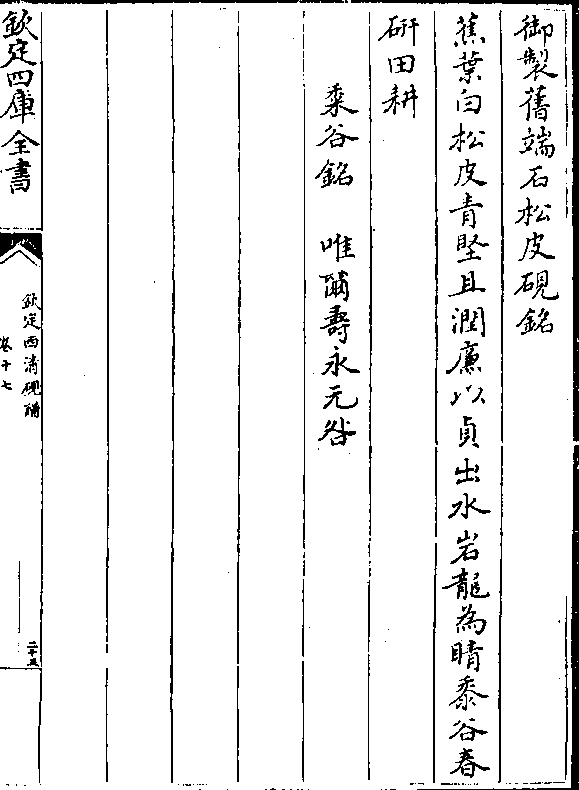 御製舊端石松皮硯銘
蕉葉白松皮青堅且潤廉以貞出水岩龍為晴黍谷春
硏田耕
谷銘　唯爾壽永无咎
欽定四庫全書
欽定西清硯譜
卷十七
二十五